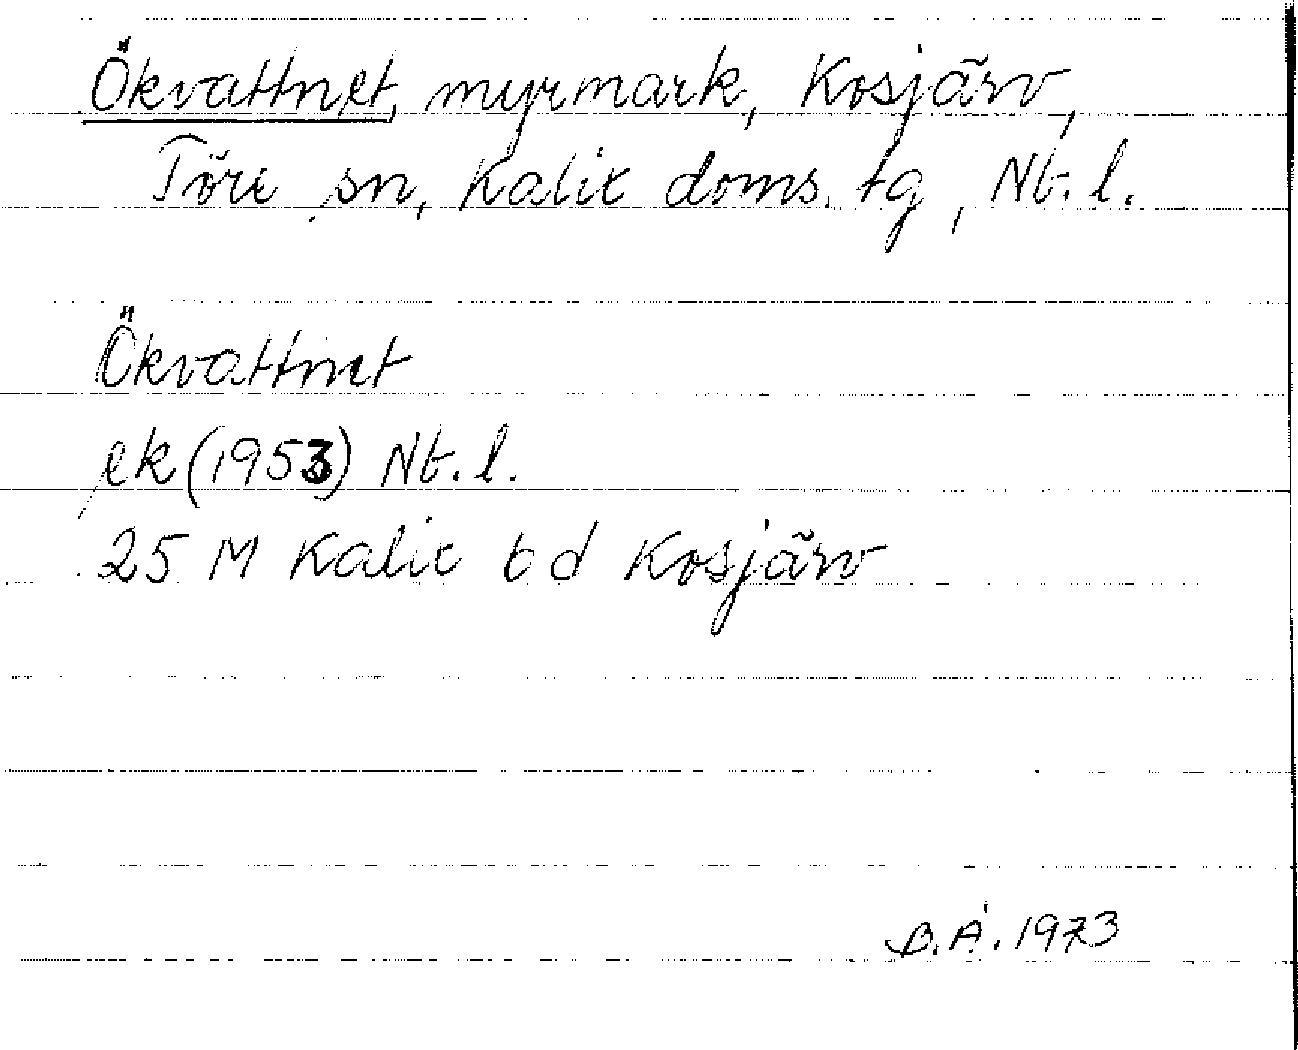 Ökvattnet, myrmark, Kosjärv,
Töre sn, Kalix doms. tg, Nb. l.
Ökvattnet
ek (1953) Nb. l.
25 M Kalix b d Kosjärv
B.Å. 1973